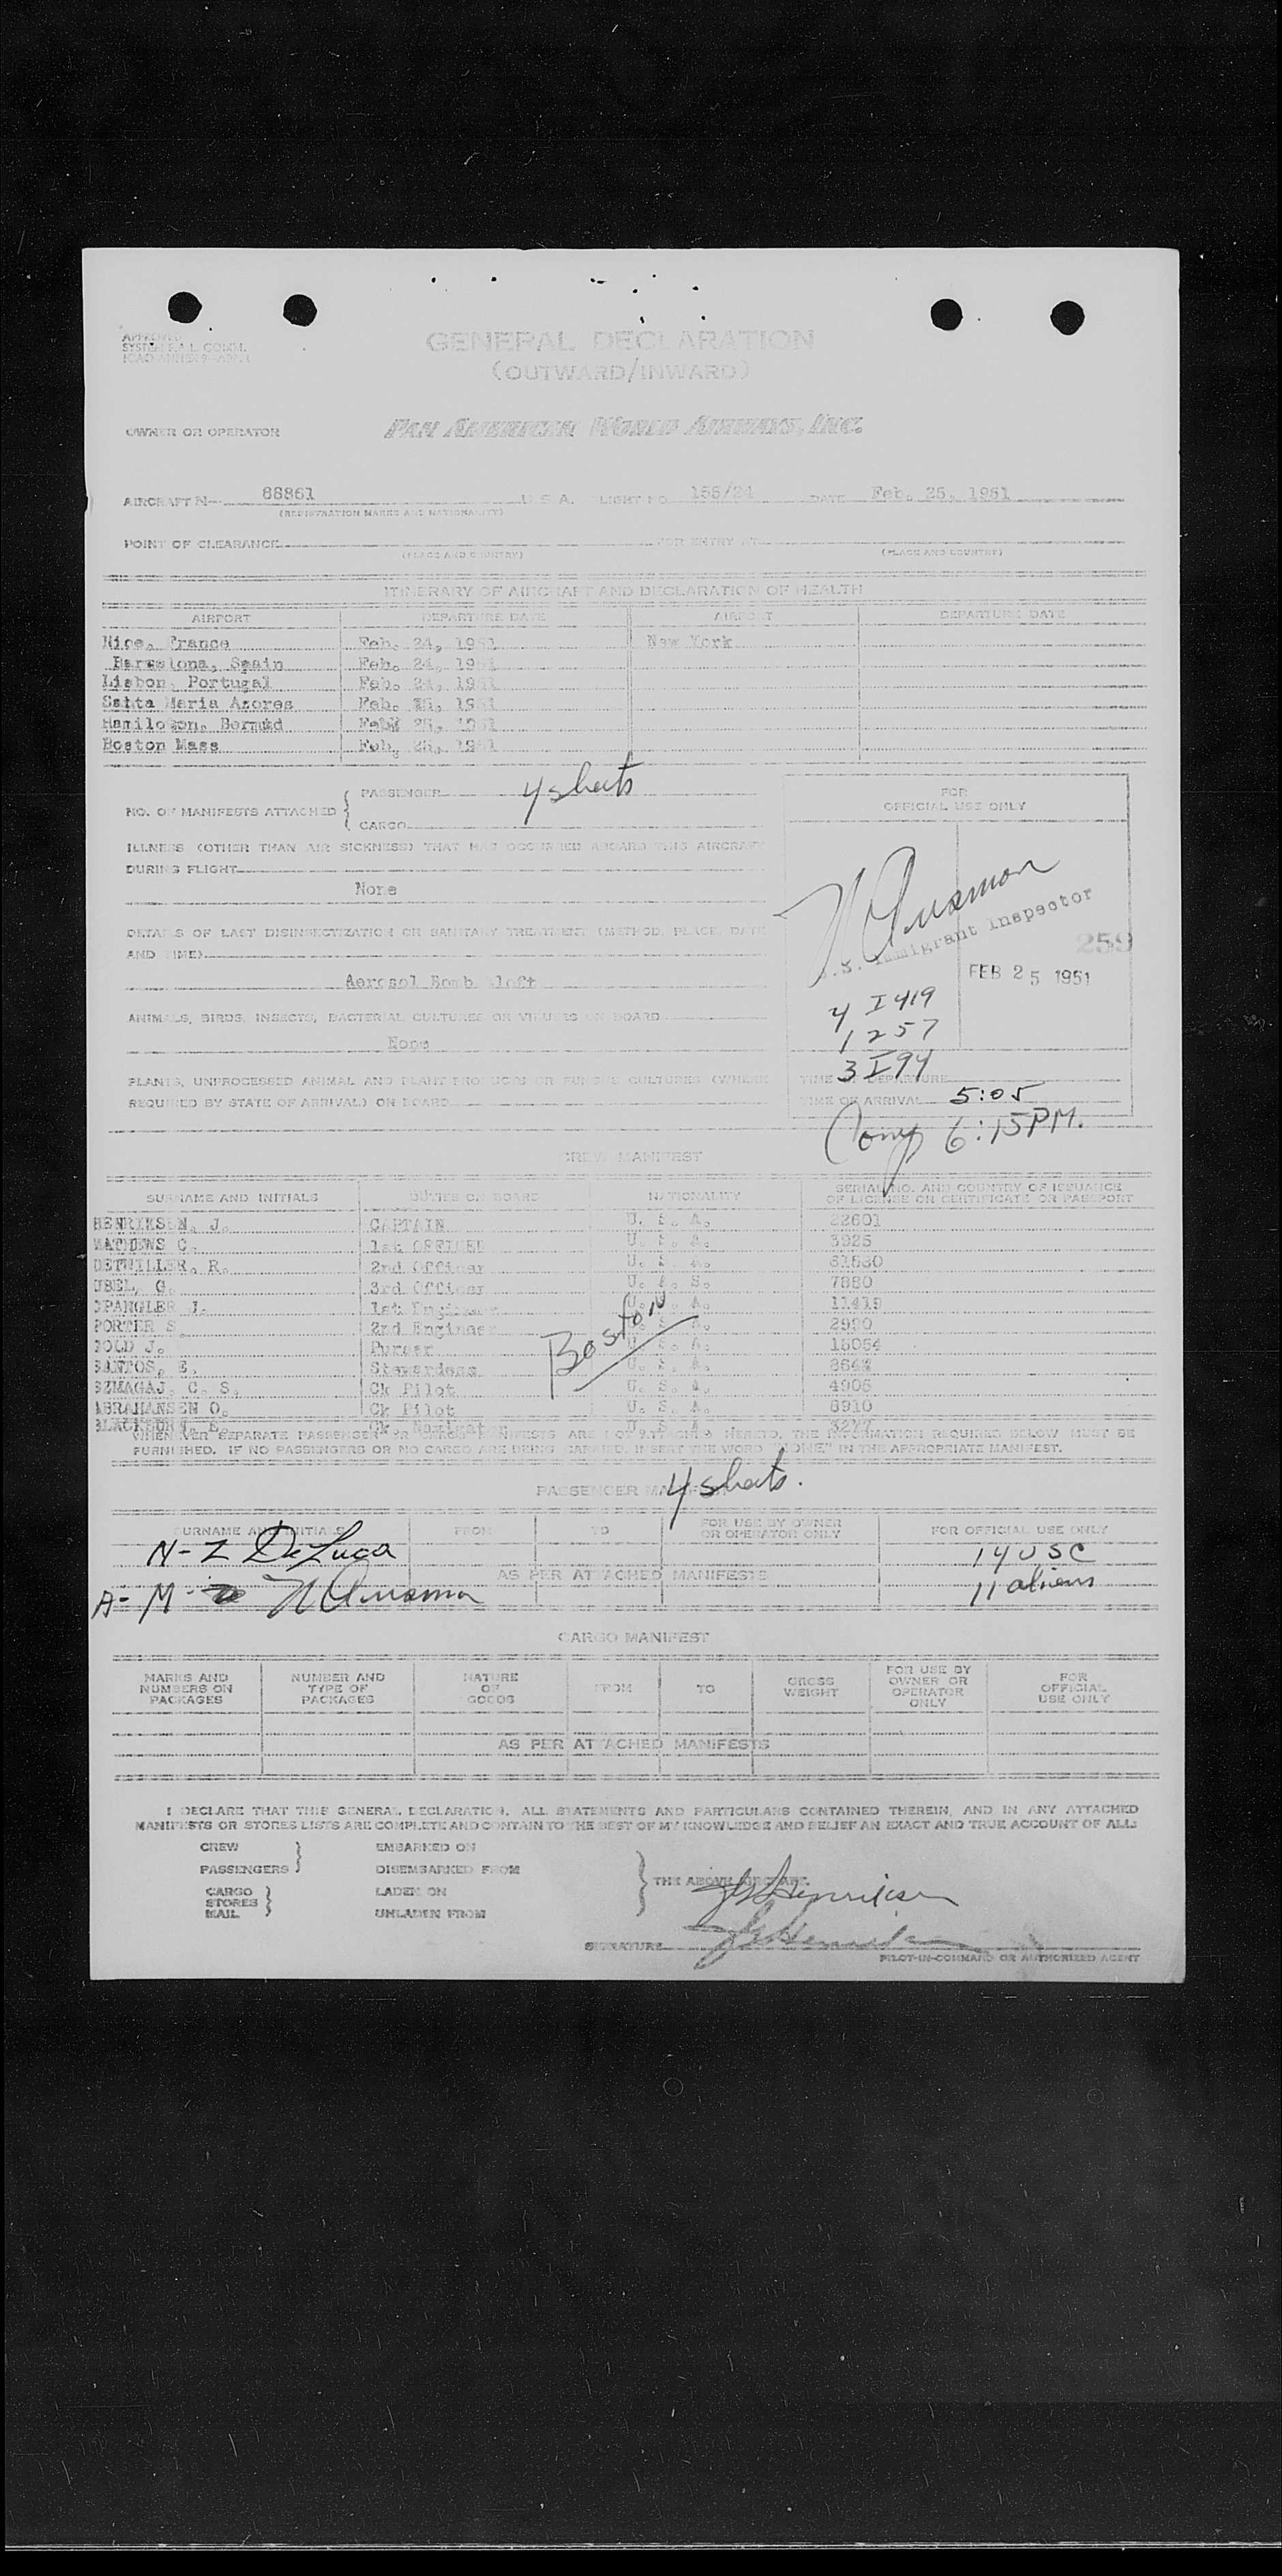 APPROVED
SYSTEM F.A.L. COMM.
ICAO ANNEX 9-APP. 1
GENERAL DECLARATION
(OUTWARD/INWARD)
OWNER OR OPERATOR PAN AMERICAN WORLD AIRWAYS, INC.
AIRCRAFT N- 88861 U. S. A. LIGHT NO. 155/24 DATE Feb. 25, 1951
(REGISTRATION MARKS AND NATIONALITY)
POINT OF CLEARANCE FOR ENTRY AT
(PLACE AND COUNTRY) (PLACE AND COUNTRY)
ITINERARY OF AIRCRAFT AND DECLARATION OF HEALTH
AIRPORT DEPARTURE DATE AIRPORT DEPARTURE DATE
Nice, France Feb. 24, 1951 New York
Barcelona, Spain Feb. 24, 1951
Lisbon, Portugal Feb. 24, 1951
Santa Maria Azores Feb. 1951
Hamilton, Bermud Feb 25, 1951
Boston Mass Feb. 25, 1951
NO. OF MANIFESTS ATTACHED { PASSENGER 4 sheets
CARGO
FOR
OFFICIAL USE ONLY
ILLNESS (OTHER THAN AIR SICKNESS) THAT HAS OCCURRED ABOARD THIS AIRCRAFT
DURING FLIGHT
None
DETAILS OF LAST DISINSECTIZATION OR SANITARY TREATMENT (METHOD, PLACE, DATE
AND TIME)
Aerosol Bomb aloft
U.S. Immigrant Inspector
259
FEB 25 1951
ANIMALS, BIRDS, INSECTS, BACTERIAL CULTURES OR VIRUSES ON BOARD
None
4 I 419
1 257
3 I 94
PLANTS, UNPROCESSED ANIMAL AND PLANT PRODUCTS OR FUNGUS CULTURES (WHERE
REQUIRED BY STATE OF ARRIVAL) ON BOARD
TIME OF DEPARTURE
TIME OF ARRIVAL 5:05
6:15 PM.
CREW MANIFEST
SURNAME AND INITIALS DUTIES ON BOARD NATIONALITY SERIAL NO. AND COUNTRY OF ISSUANCE
OF LICENSE OR CERTIFICATE OR PASSPORT
HENRIKSEN, J. CAPTAIN U. S. A. 22601
MATHEWS C. 1st OFFICER U. S. A. 3925
DETWILLER, R. 2nd Officer U. S. A. 31530
UBEL, G. 3rd Officer U. A. S. 7880
SPANGLER J. 1st Engineer U. S. A. 11419
PORTER S. 2nd Engineer U. S. A. 2990
GOLD J. Purser U. S. A. 15054
SANTOS, E. Stewardess U. S. A.
SZMAGAJ, C. S. Ck Pilot U. S. A. 4905
ABRAHANSEN O. Ck Pilot U. S. A. 8910
BLACKBURN, E. Ck Navigator U. S. A.
Boston
WHENEVER SEPARATE PASSENGER OR CARGO MANIFESTS ARE NOT ATTACHED HERETO, THE INFORMATION REQUIRED BELOW MUST BE
FURNISHED. IF NO PASSENGERS OR NO CARGO ARE BEING CARRIED, INSERT THE WORD "NONE" IN THE APPROPRIATE MANIFEST.
PASSENGER MANIFEST 4 sheets.
SURNAME AND INITIALS FROM TO FOR USE BY OWNER
OR OPERATOR ONLY FOR OFFICIAL USE ONLY
N-Z De Luca 14 USC
AS PER ATTACHED MANIFESTS
A-M 11 aliens
CARGO MANIFEST
MARKS AND
NUMBERS ON
PACKAGES NUMBER AND
TYPE OF
PACKAGES NATURE
OF
GOODS FROM TO GROSS
WEIGHT FOR USE BY
OWNER OR
OPERATOR
ONLY FOR
OFFICIAL
USE ONLY
AS PER ATTACHED MANIFESTS
I DECLARE THAT THIS GENERAL DECLARATION, ALL STATEMENTS AND PARTICULARS CONTAINED THEREIN, AND IN ANY ATTACHED
MANIFESTS OR STORES LISTS ARE COMPLETE AND CONTAIN TO THE BEST OF MY KNOWLEDGE AND BELIEF AN EXACT AND TRUE ACCOUNT OF ALL:
CREW EMBARKED ON
PASSENGERS DISEMBARKED FROM
THE ABOVE AIRCRAFT.
CARGO LADEN ON
STORES
MAIL UNLADEN FROM
J Henriksen
SIGNATURE J Henriksen
PILOT-IN-COMMAND OR AUTHORIZED AGENT